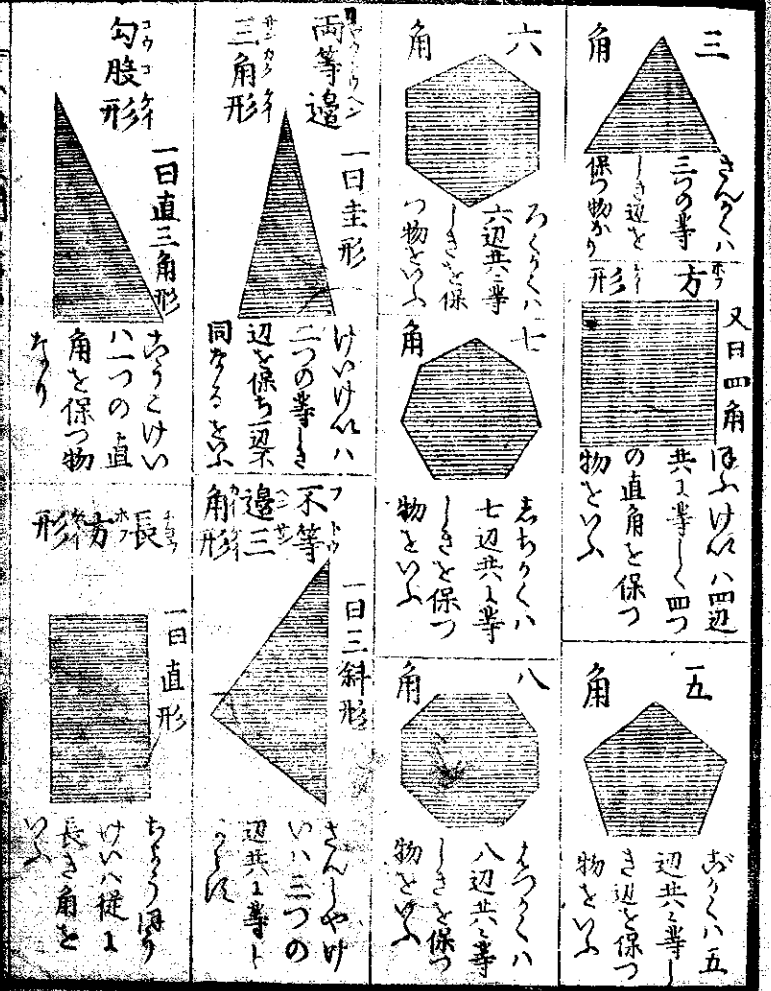 三角
さんかくハ
三つの等
しき辺を
保つ物なり
方形
ホフケイ
又曰四角
ほふけいハ四辺
共に等しく四つ
の直角を保つ
物をいふ
五角
ごかくハ五
辺共に等し
き辺を保つ
物をいふ
六角
ろくかくハ
六辺共に等
しきを保
つ物をいふ
七角
しちかくハ
七辺共に等
しきを保つ
物をいふ
八角
はつかくハ
八辺共に等
しきを保つ
物をいふ
両等邉
リヤウトウヘン
三角形
サンカクケイ
一曰圭形
けいけいハ
二つの等しき
辺を保ち一辺不
同なるをいふ
不等
フトウ
邉三
ヘンサン
角形
カクケイ
一曰三斜形
さんしやけ
いハ三つの
辺共に等し
からず
勾股形
コウコケイ
一曰直三角形
こうこけい
ハ一つの直
角を保つ物
なり
長方形
一曰直形
ちやうほう
けいハ従に
長き角を
いふ